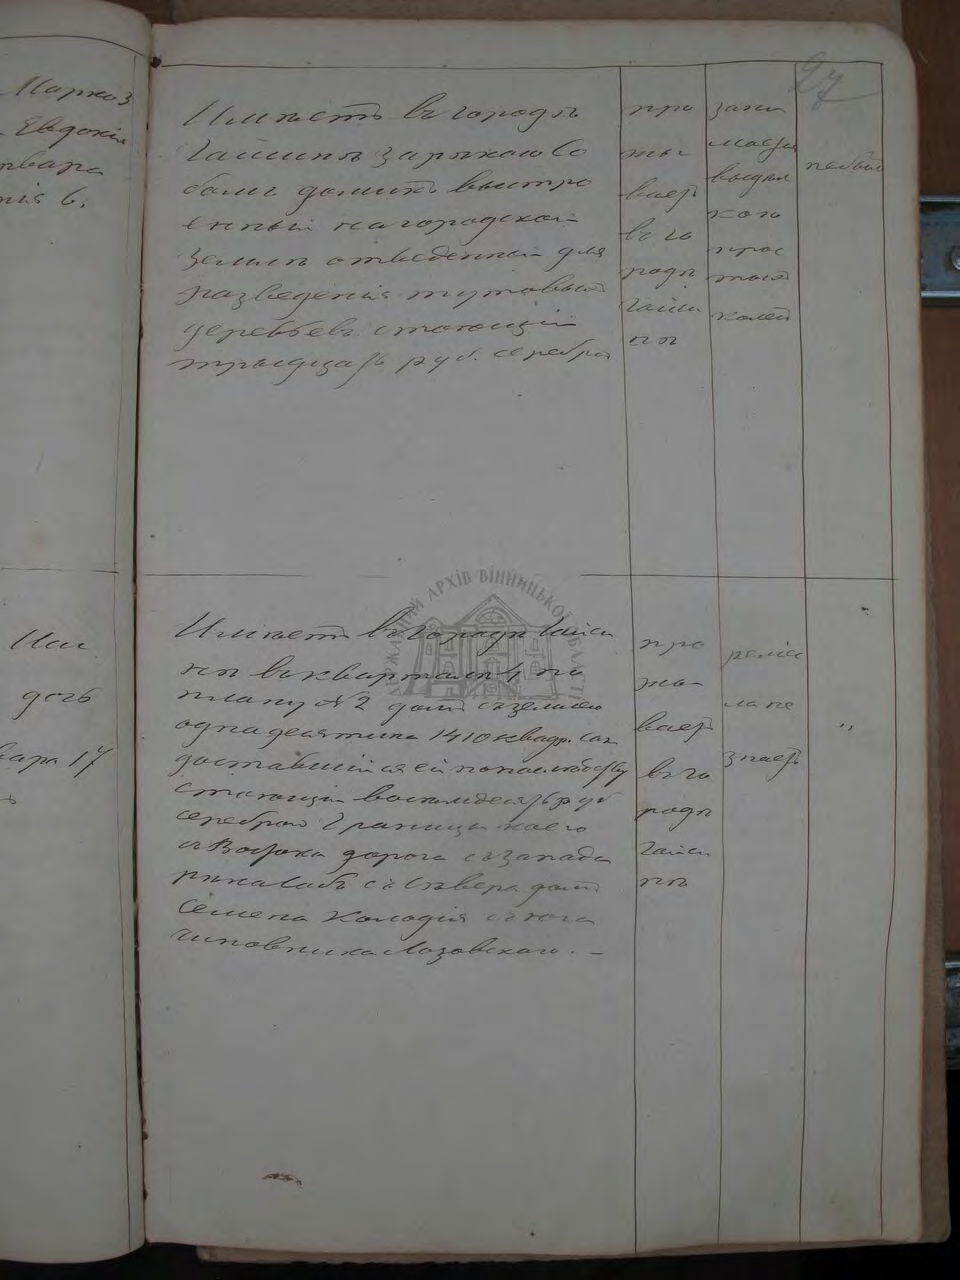 27
Марко 3
Евдокія
рвара
нія 6,
Имѣетъ въ городѣ
Гайсинѣ за рѣкою Со
бомъ домикъ выстро
енный на городской
землѣ отведенной для
разведенія тутовыхъ
деревьевъ стоющій
тридцать руб. серебромъ
про
жи
ваетъ
въ го
родѣ
Гайси
нѣ
зани
мается
выдѣл
кою
прос
тыхъ
кожей
небылъ
дочь
вара 17
Имѣетъ въ городѣ Гайси
нѣ въ кварталѣ 1 по
плану № 2 домъ съ землею
одна десятина 1410 квадр. саж
доставшійся ей по наслѣдству
стоющій восемдесятъ руб
серебромъ Границы коего
съ Востока дорога съ запада
рѣка Собъ съ Сѣвера домъ
Семена Колодія съ юга
Чиновника Лозовскаго. —
про
жи-
ваетъ
въ го
родѣ
Гайси
нѣ
ремес
ла не
знаетъ
"
ДЕРЖАВНИЙ АРХІВ ВІННИЦЬКОЇ ОБЛАСТІ